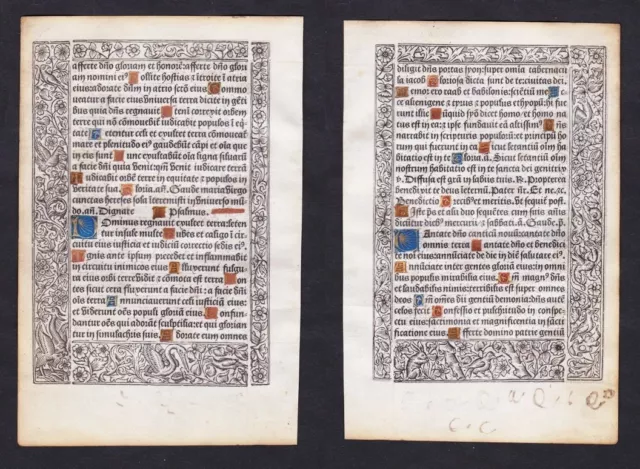 afferte dño gloriam et honorẽ: afferte dño glori
am nomini ei⁹ Tollite hostias ⁊ ĩtroite ĩ atria
eius: adorate dñm in atrio sct̃o eius Com̃o
ueatur a facie eius vniuersa terra dicite in gẽti
bus quia dñs regnauit Etenĩ correxit orbem
terre qui nõ cõmouebit᷑ iudicabit populos ĩ eq̃
tate Letentur celi et exultet terra cõmoueat᷑
mare et plenitudo ei⁹ gaudebũt cãpi et oĩa que
in eis sunt Tunc exultabũt oĩa ligna siluarũ
a facie dñi quia venit: qm̃ venit iudicare terrã
Iudicabit orbẽ terre ĩ equitate ⁊ populos in
veritate sua Gloria. añ. Gaude maria virgo
cunctas hereses sola ĩteremisti in vniuerso mũ
do. añ. Dignare Psalmus.
Dominus regnauit exultet terra: leten
tur insule multe Nubes et caligo ĩ cir
cuitu eius iusticia et iudiciũ correctio sedis ei⁹
Ignis ante ipsum precedet et inflammabit
in circuitu inimicos eius Alluxerunt fulgu
ra eius orbi terre: vidit ⁊ cõmota est terra
Montes sicut cera fluxerunt a facie dñi: a facie dñi
oĩs terra Annunciauerunt celi iusticiã eius: et
viderunt oẽs populi gloriã eius Confun
dantur oẽs qui adorãt sculptilia: et qui glorian
tur in simulachris suis Adorate eum omnes
diligit dñs portas syon: super omĩa tabernacu
la iacob Gloriosa dicta sunt de te: ciuitas dei
Memor ero raab et babilonis: sciẽtiũ me
Ecce alienigene ⁊ tyrus ⁊ populus ethyopũ: hi fue
runt illic Nunquid syõ dicet homo: et homo na
tus est in ea: ⁊ ipse fundauit eã altissim⁹ Dñs
narrabit in scripturis populorũ: et principũ horum
qui fuerunt in ea Sicut letantiũ oĩm
habitatio est in te Gloria. ã. Sicut letantiũ oĩ
nostrum habitatio est in te sancta dei genitrix
v. Diffusa est grã in labiis tuis. R. Propterea
benedixit te deus ĩeternũ. Pater nr̃. Et ne. ꝛc.
Benedictio Precib⁹ et meritis. Vt sequit᷑ post
Iste ps̃ et alii duo sequẽtes cum suis añis
dicunt᷑ diebus mercurii ⁊ sabbati. ã. Gaude. p̃.
Cantate dño canticũ nouũ: cantate dño
omnis terra Cantate dño et benedicite
noĩ eius: annunciate de die in diẽ salutare ei⁹
Annũciate inter gentes gloriã eius: in omni
bus populis mirabilia eius Qm̃ magn⁹ dñs
et laudabilis nimis: terribilis est super omnes
deos Qm̃ omẽs dii gentiũ demonia: dñs autẽ
celos fecit Confessio et pulchritudo in conspe
ctu eius: sactimonia et magnificentia in sãcti
ficatione eius Afferte domino patrie gentiũ